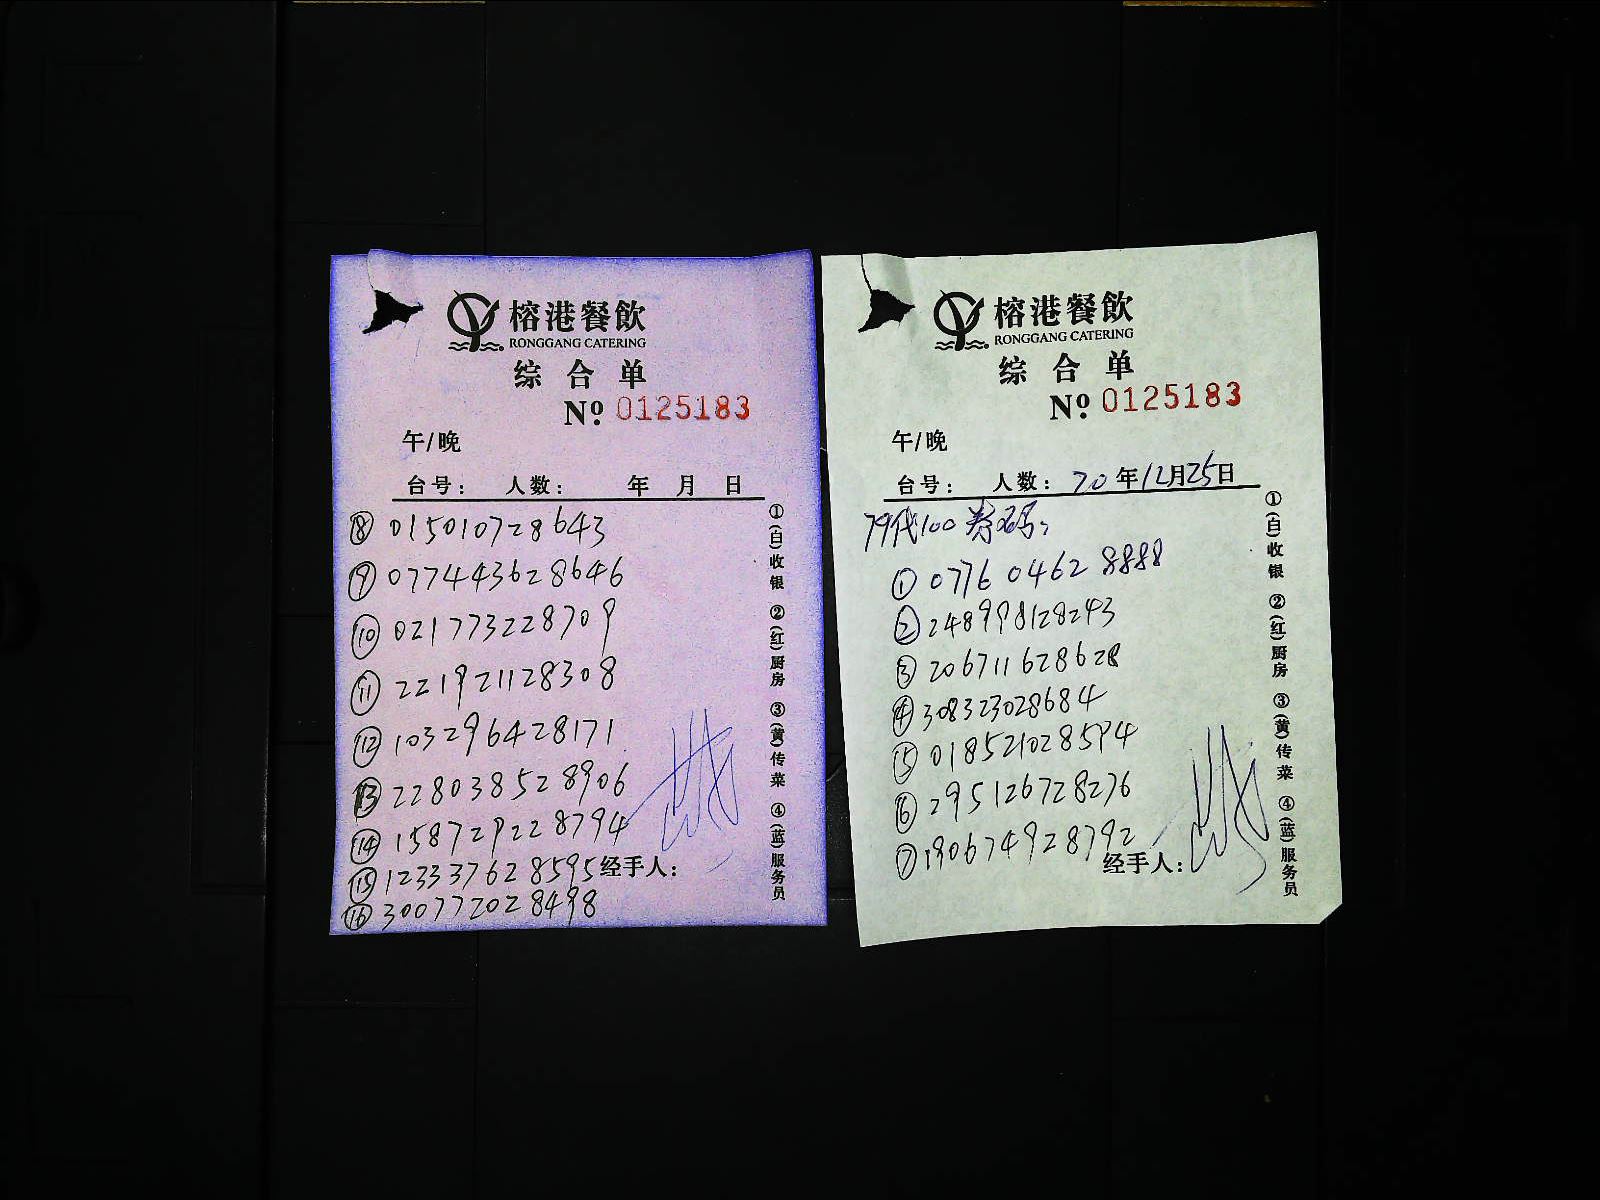 榕港餐飲
RONGGANG CATERING
综合单
№ 0125183
午/晚
台号： 人数： 年 月 日
⑧ 015010728643
⑨ 077443628646
⑩ 021773228709
⑪ 221921128308
⑫ 103296428171
⑬ 228038528906
⑭ 158729228794
⑮ 123337628595
经手人：
⑯ 300772028498
①(白)收银 ②(红)厨房 ③(黄)传菜 ④(蓝)服务员
榕港餐飲
RONGGANG CATERING
综合单
№ 0125183
午/晚
台号： 人数： 20年12月25日
79代100券码：
① 0776 0462 8888
② 248998128243
③ 206711628628
④ 308323028684
⑤ 018521028594
⑥ 295126728276
⑦ 190674928792
经手人：
①(白)收银 ②(红)厨房 ③(黄)传菜 ④(蓝)服务员